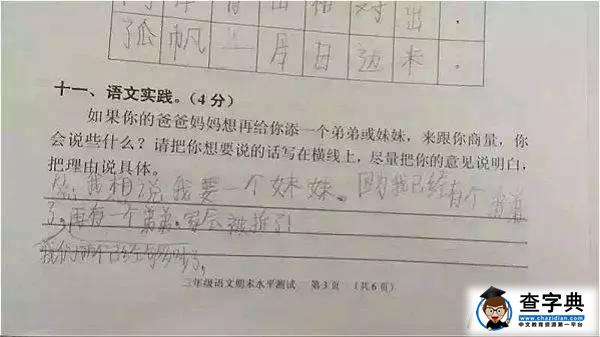 了孤帆一片日边来。
十一、语文实践。(4分)
如果你的爸爸妈妈想再给你添一个弟弟或妹妹,来跟你商量,你
会说些什么?请把你想要说的话写在横线上,尽量把你的意见说明白,
把理由说具体。
我相说我要一个妹妹。因为我已经有个弟弟
了。再有一个弟弟。家会被拆了!
我们两个已经够
三年级语文期末水平测试 第3页 (共6页)
查字典
www.chazidian.com
中文教育资源第一平台